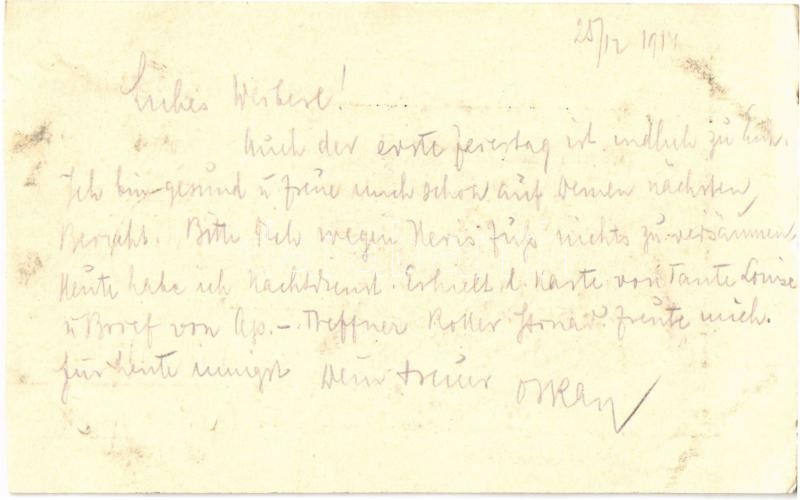 25/12 1914
Liebes Weiberl!
Auch der erste Feiertag ist endlich zu Ende.
Ich bin gesund u freue mich schon auf Deinen nächsten
Bericht. Bitte Dich wegen Fuß nichts zu versäumen.
Heute habe ich Nachtdienst. Erhielt d. Karte von Tante Louise
u Brief von Treffner Koller freute mich.
Für heute innigst Dein treuer Oskar